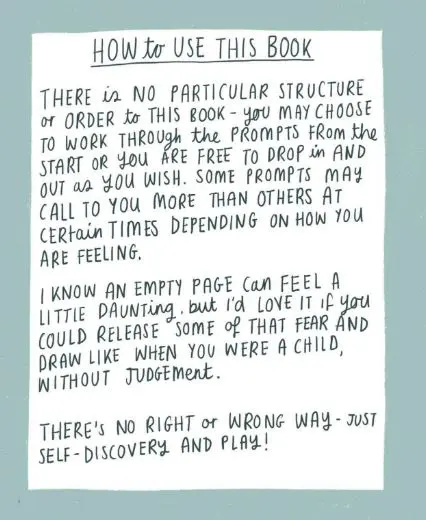 HOW to USE THIS BOOK
THERE is NO PARTICULAR STRUCTURE
or ORDER to THIS BOOK - you MAY CHOOSE
TO WORK THROUGH the PROMPTS FROM the
START OR you ARE FREE TO DROP in AND
OUT as YOU WISH. SOME PROMPTS MAY
CALL TO YOU MORE THAN OTHERS AT
CERtain TIMES DEPENDING ON HOW YOU
ARE FEELING.
I KNOW AN EMPTY PAGE Can FEEL A
LITTLE DAUNTing, but I'd LOVE IT if you
COULD RELEASE SOME of THAT FEAR AND
DRAW LIKE WHEN YOU WERE A CHILD,
WITHOUT JUDGEMENT.
THERE'S NO RIGHT or WRONG WAY - JUST
SELF-DISCOVERY AND PLAY!